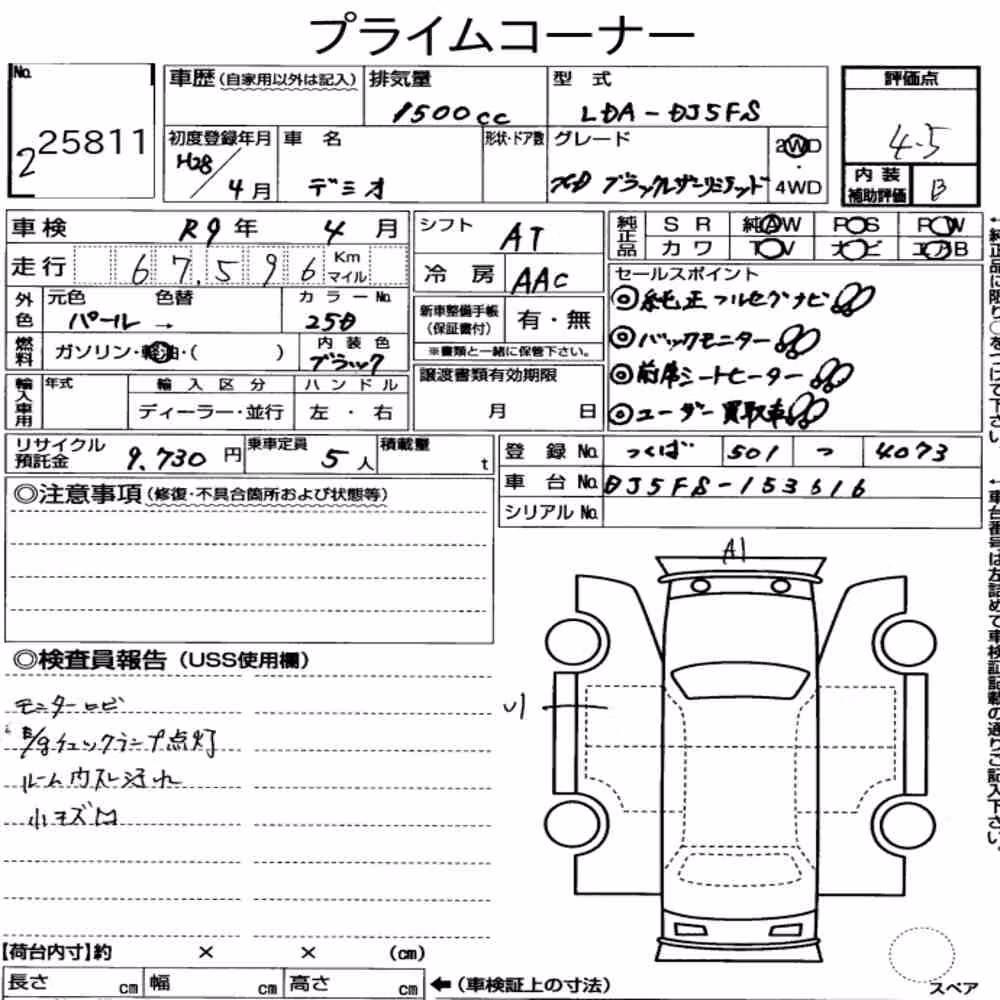 プライムコーナー
No.
2 25811
車歴(自家用以外は記入)
排気量
1500cc
型式
LDA-DJ5FS
評価点
4.5
初度登録年月
H28/4月
車名
デミオ
形状・ドア数
グレード
XD ブラックレザーリミテッド
2WD
・
4WD
内装
補助評価
B
車検
R9年 4月
走行
67,596
Km
マイル
シフト
AT
冷房
AAC
純正品
SR 純AW PS PW
カワ TV ナビ エアB
外色
元色 色替
パール→
カラーNo.
25D
燃料
ガソリン・軽油・( )
内装色
ブラック
新車整備手帳
(保証書付)
有・無
※書類と一緒に保管下さい。
セールスポイント
◎純正フルセグナビ
◎バックモニター
◎前席シートヒーター
◎ユーザー買取車
輸入車用
年式
輸入区分
ディーラー・並行
ハンドル
左・右
譲渡書類有効期限
月 日
リサイクル
預託金
9,730円
乗車定員
5人
積載量
t
登録No.
つくば 501 つ 4073
車台No.
DJ5FS-153616
シリアルNo.
◎注意事項(修復・不具合箇所および状態等)
◎検査員報告(USS使用欄)
モニターロビ
E/gチェックランプ点灯
ルーム内スレ汚れ
小キズ凹
A1
U1
【荷台内寸】約 × × (cm)
長さ cm 幅 cm 高さ cm
←(車検証上の寸法)
スペア
←純正品に限り○をつけて下さい。
←車台番号は左詰めで車検証記載の通りご記入下さい。